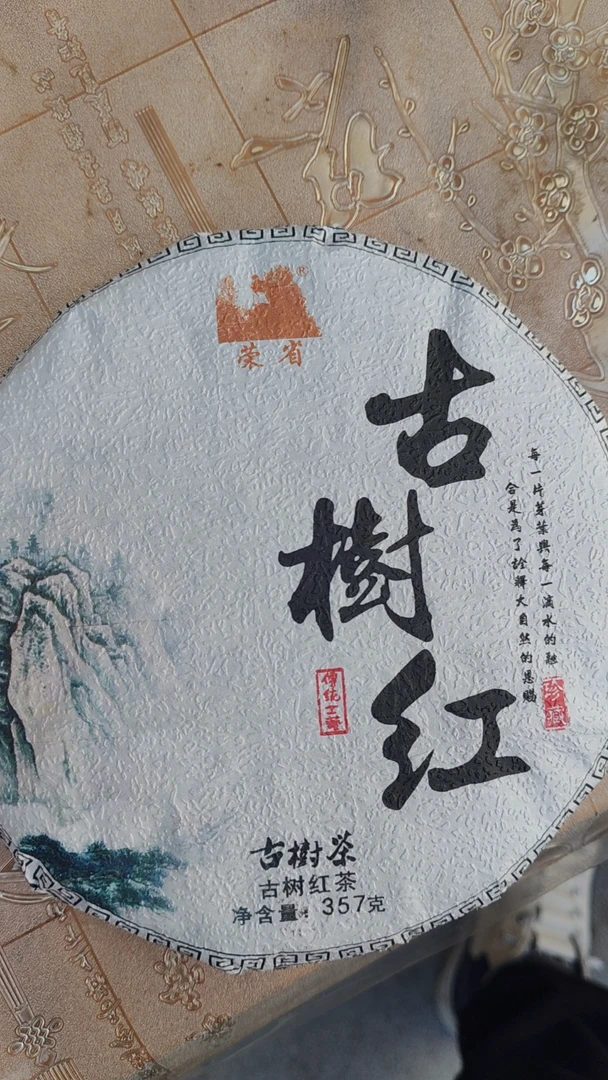 ®
荣省
古樹红
每一片芽葉與每一滴水的融
合是為了詮釋大自然的恩賜
珍藏
古樹茶
古树红茶
净含量：357克